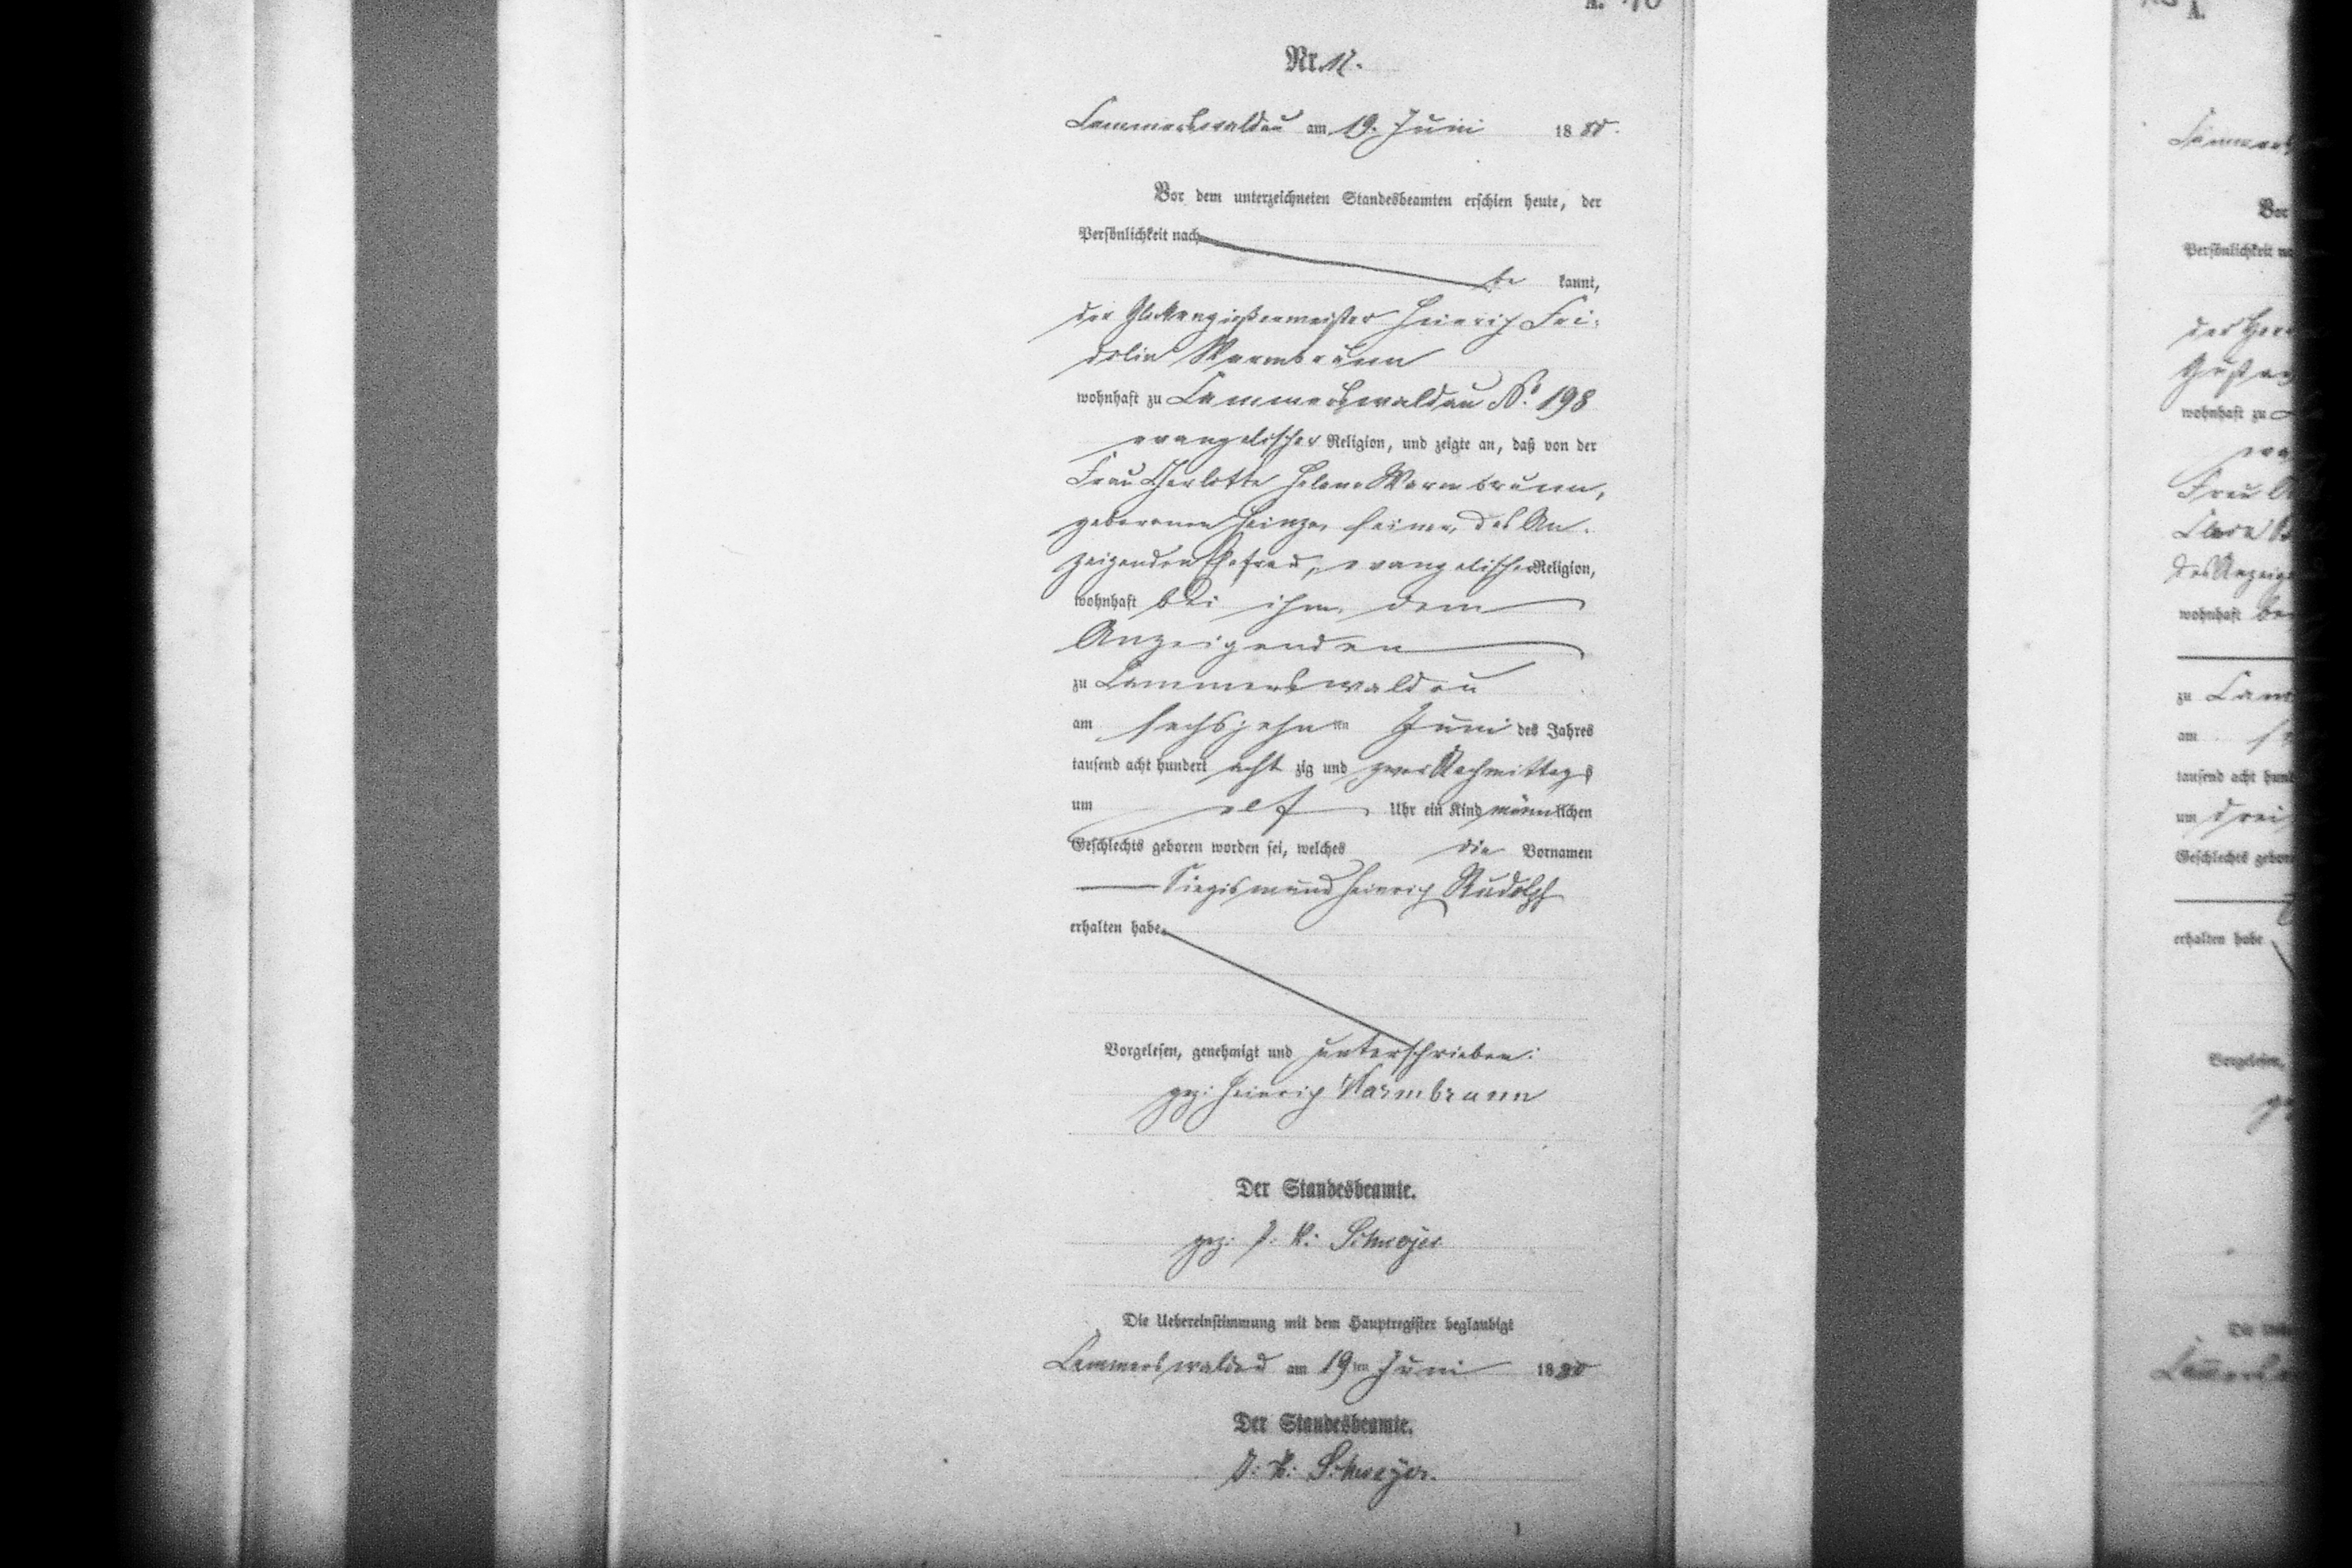 A. 40
Nr. 17.
Lammerswaldau am 19. Juni 1880.
Vor dem unterzeichneten Standesbeamten erschien heute, der
Persönlichkeit nach
be kannt,
der Glockengießermeister Heinrich Fri-
dolin Warmbrunn
wohnhaft zu Lammerswaldau No. 198
evangelischer Religion, und zeigte an, daß von der
Frau Charlotte Helene Warmbrunn,
geborenen Heinze, seiner, des An-
zeigenden Ehefrau, evangelischer Religion,
wohnhaft bei ihm, dem
Anzeigenden
zu Lammerswaldau
am sechszehn ten Juni des Jahres
tausend acht hundert acht zig und zwar Nachmittags
um elf Uhr ein Kind männlichen
Geschlechts geboren worden sei, welches die Vornamen
Siegismund Heinrich Rudolph
erhalten habe.
Vorgelesen, genehmigt und unterschrieben:
gez: Heinrich Warmbrunn
Der Standesbeamte.
gez: J. V.
Die Uebereinstimmung mit dem Hauptregister beglaubigt
Lammerswaldau am 19 ten Juni 1880
Der Standesbeamte.
J. V.
1
A.
Vor
Persönlichkeit
wohnhaft zu
Frau
wohnhaft
zu
am
tausend acht
um drei
Geschlechts
erhalten habe